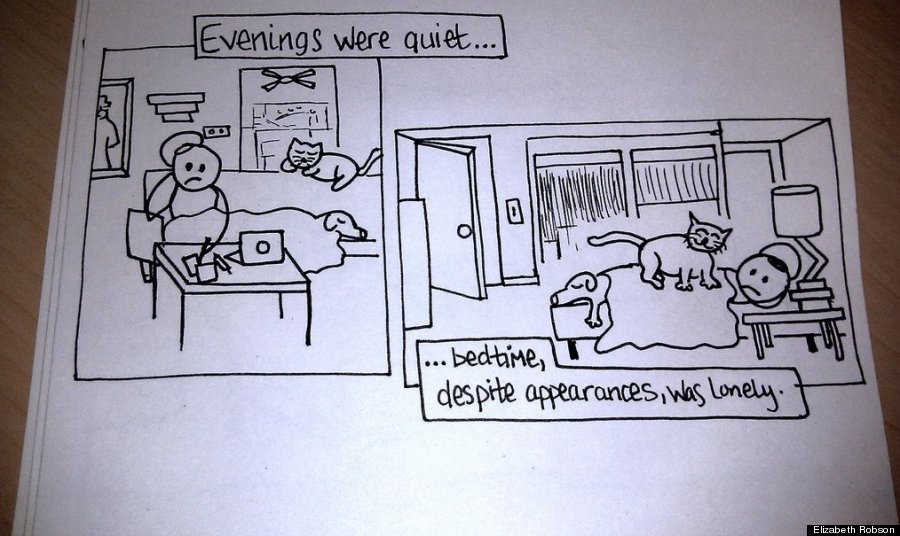 Evenings were quiet...
...bedtime,
despite appearances, was lonely.
Elizabeth Robson